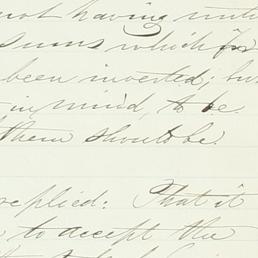 not having
sums which for
been inverted; but
in mind, to be
them should be.
replied: That it
to accept the